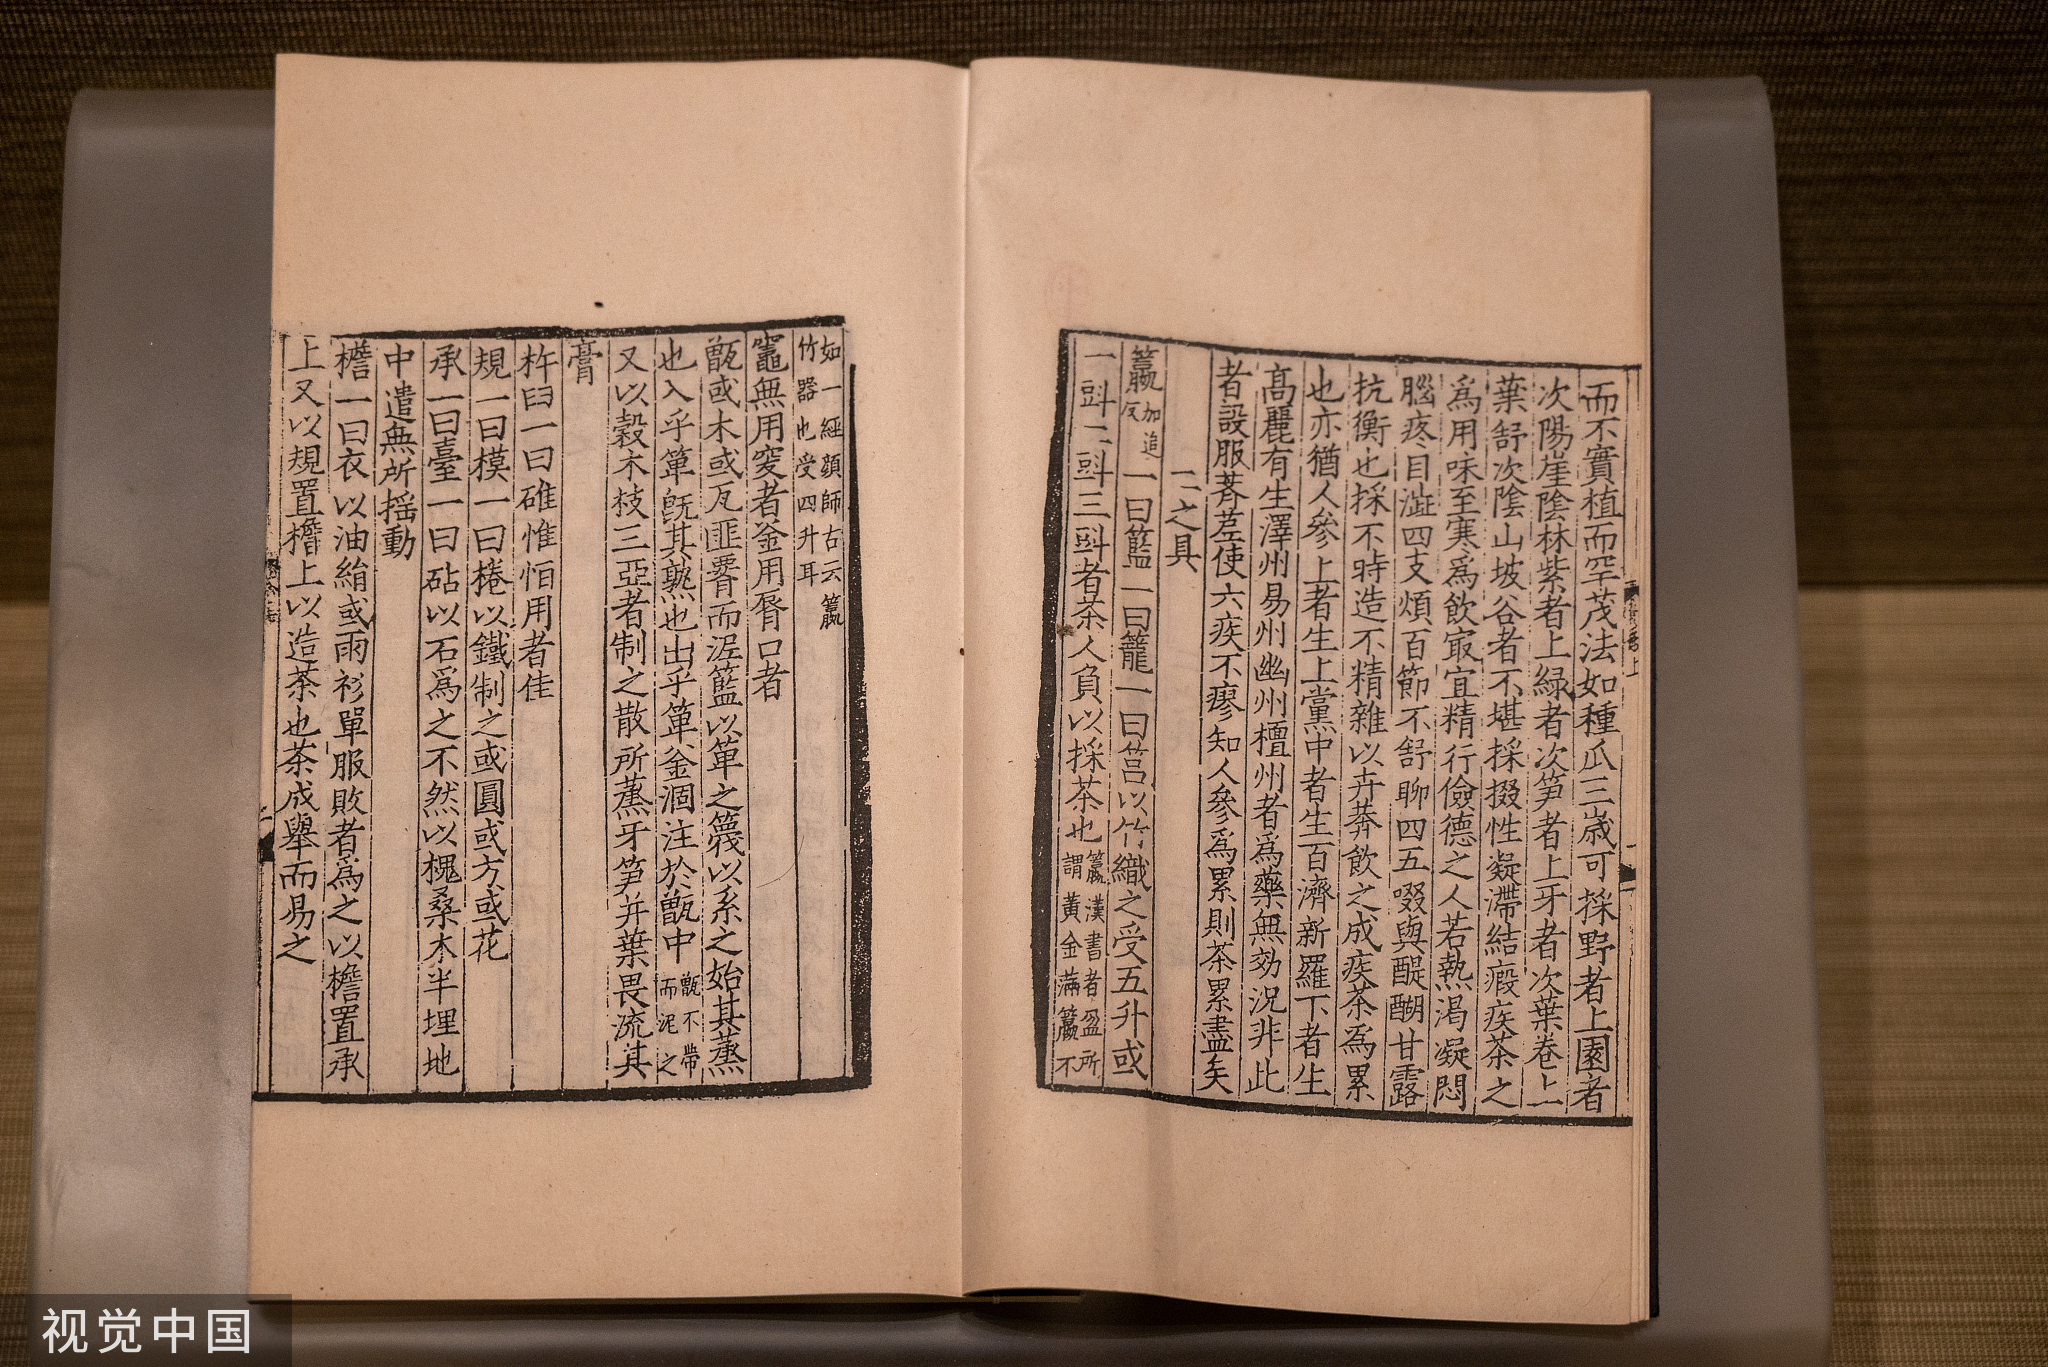 而不實植而罕茂法如種瓜三歲可採野者上園者
次陽崖陰林紫者上綠者次笋者上牙者次葉卷上
葉舒次陰山坡谷者不堪採掇性凝滯結瘕疾茶之
爲用味至寒爲飲㝡宜精行儉德之人若熱渴凝悶
腦疼目澁四支煩百節不舒聊四五啜與醍醐甘露
抗衡也採不時造不精雜以卉莽飲之成疾茶爲累
也亦猶人參上者生上黨中者生百濟新羅下者生
髙麗有生澤州易州幽州檀州者爲藥無効況非此
者設服薺苨使六疾不瘳知人參爲累則茶累盡矣
二之具
籯加追反一曰籃一曰籠一曰筥以竹織之受五升或
一㪷二㪷三㪷者茶人負以採茶也籯漢書者盈所謂黃金滿籯不
如一經顔師古云籯竹器也受四升耳
竈無用窔者釜用脣口者
甑或木或瓦匪署而泥籃以箄之篾以系之始其蒸
也入乎箄旣其熟也出乎箄釜涸注於甑中甑不帶而泥之
又以榖木枝三亞者制之散所蒸牙笋并葉畏流其
膏
杵臼一曰碓惟恒用者佳
規一曰模一曰棬以鐵制之或圓或方或花
承一曰臺一曰砧以石爲之不然以槐桑木半埋地
中遣無所揺動
檐一曰衣以油絹或雨衫單服敗者爲之以檐置承
上又以規置檐上以造茶也茶成舉而易之
視觉中国